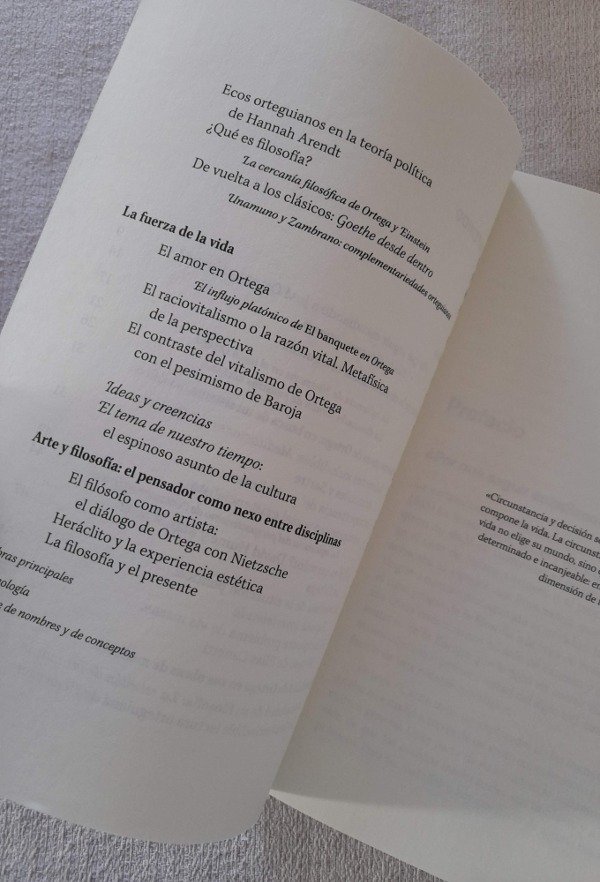 Ecos orteguianos en la teoría política
de Hannah Arendt
¿Qué es filosofía?
La cercanía filosófica de Ortega y Einstein
De vuelta a los clásicos: Goethe desde dentro
Unamuno y Zambrano: complementariedades orteguianas
La fuerza de la vida
El amor en Ortega
El influjo platónico de El banquete en Ortega
El raciovitalismo o la razón vital. Metafísica
de la perspectiva
El contraste del vitalismo de Ortega
con el pesimismo de Baroja
Ideas y creencias
El tema de nuestro tiempo:
el espinoso asunto de la cultura
Arte y filosofía: el pensador como nexo entre disciplinas
El filósofo como artista:
el diálogo de Ortega con Nietzsche
Heráclito y la experiencia estética
La filosofía y el presente
principales
de nombres y de conceptos
«Circunstancia y decisión
compone la vida. La
vida no elige su mundo, sino
determinado e incanjeable:
dimensión de